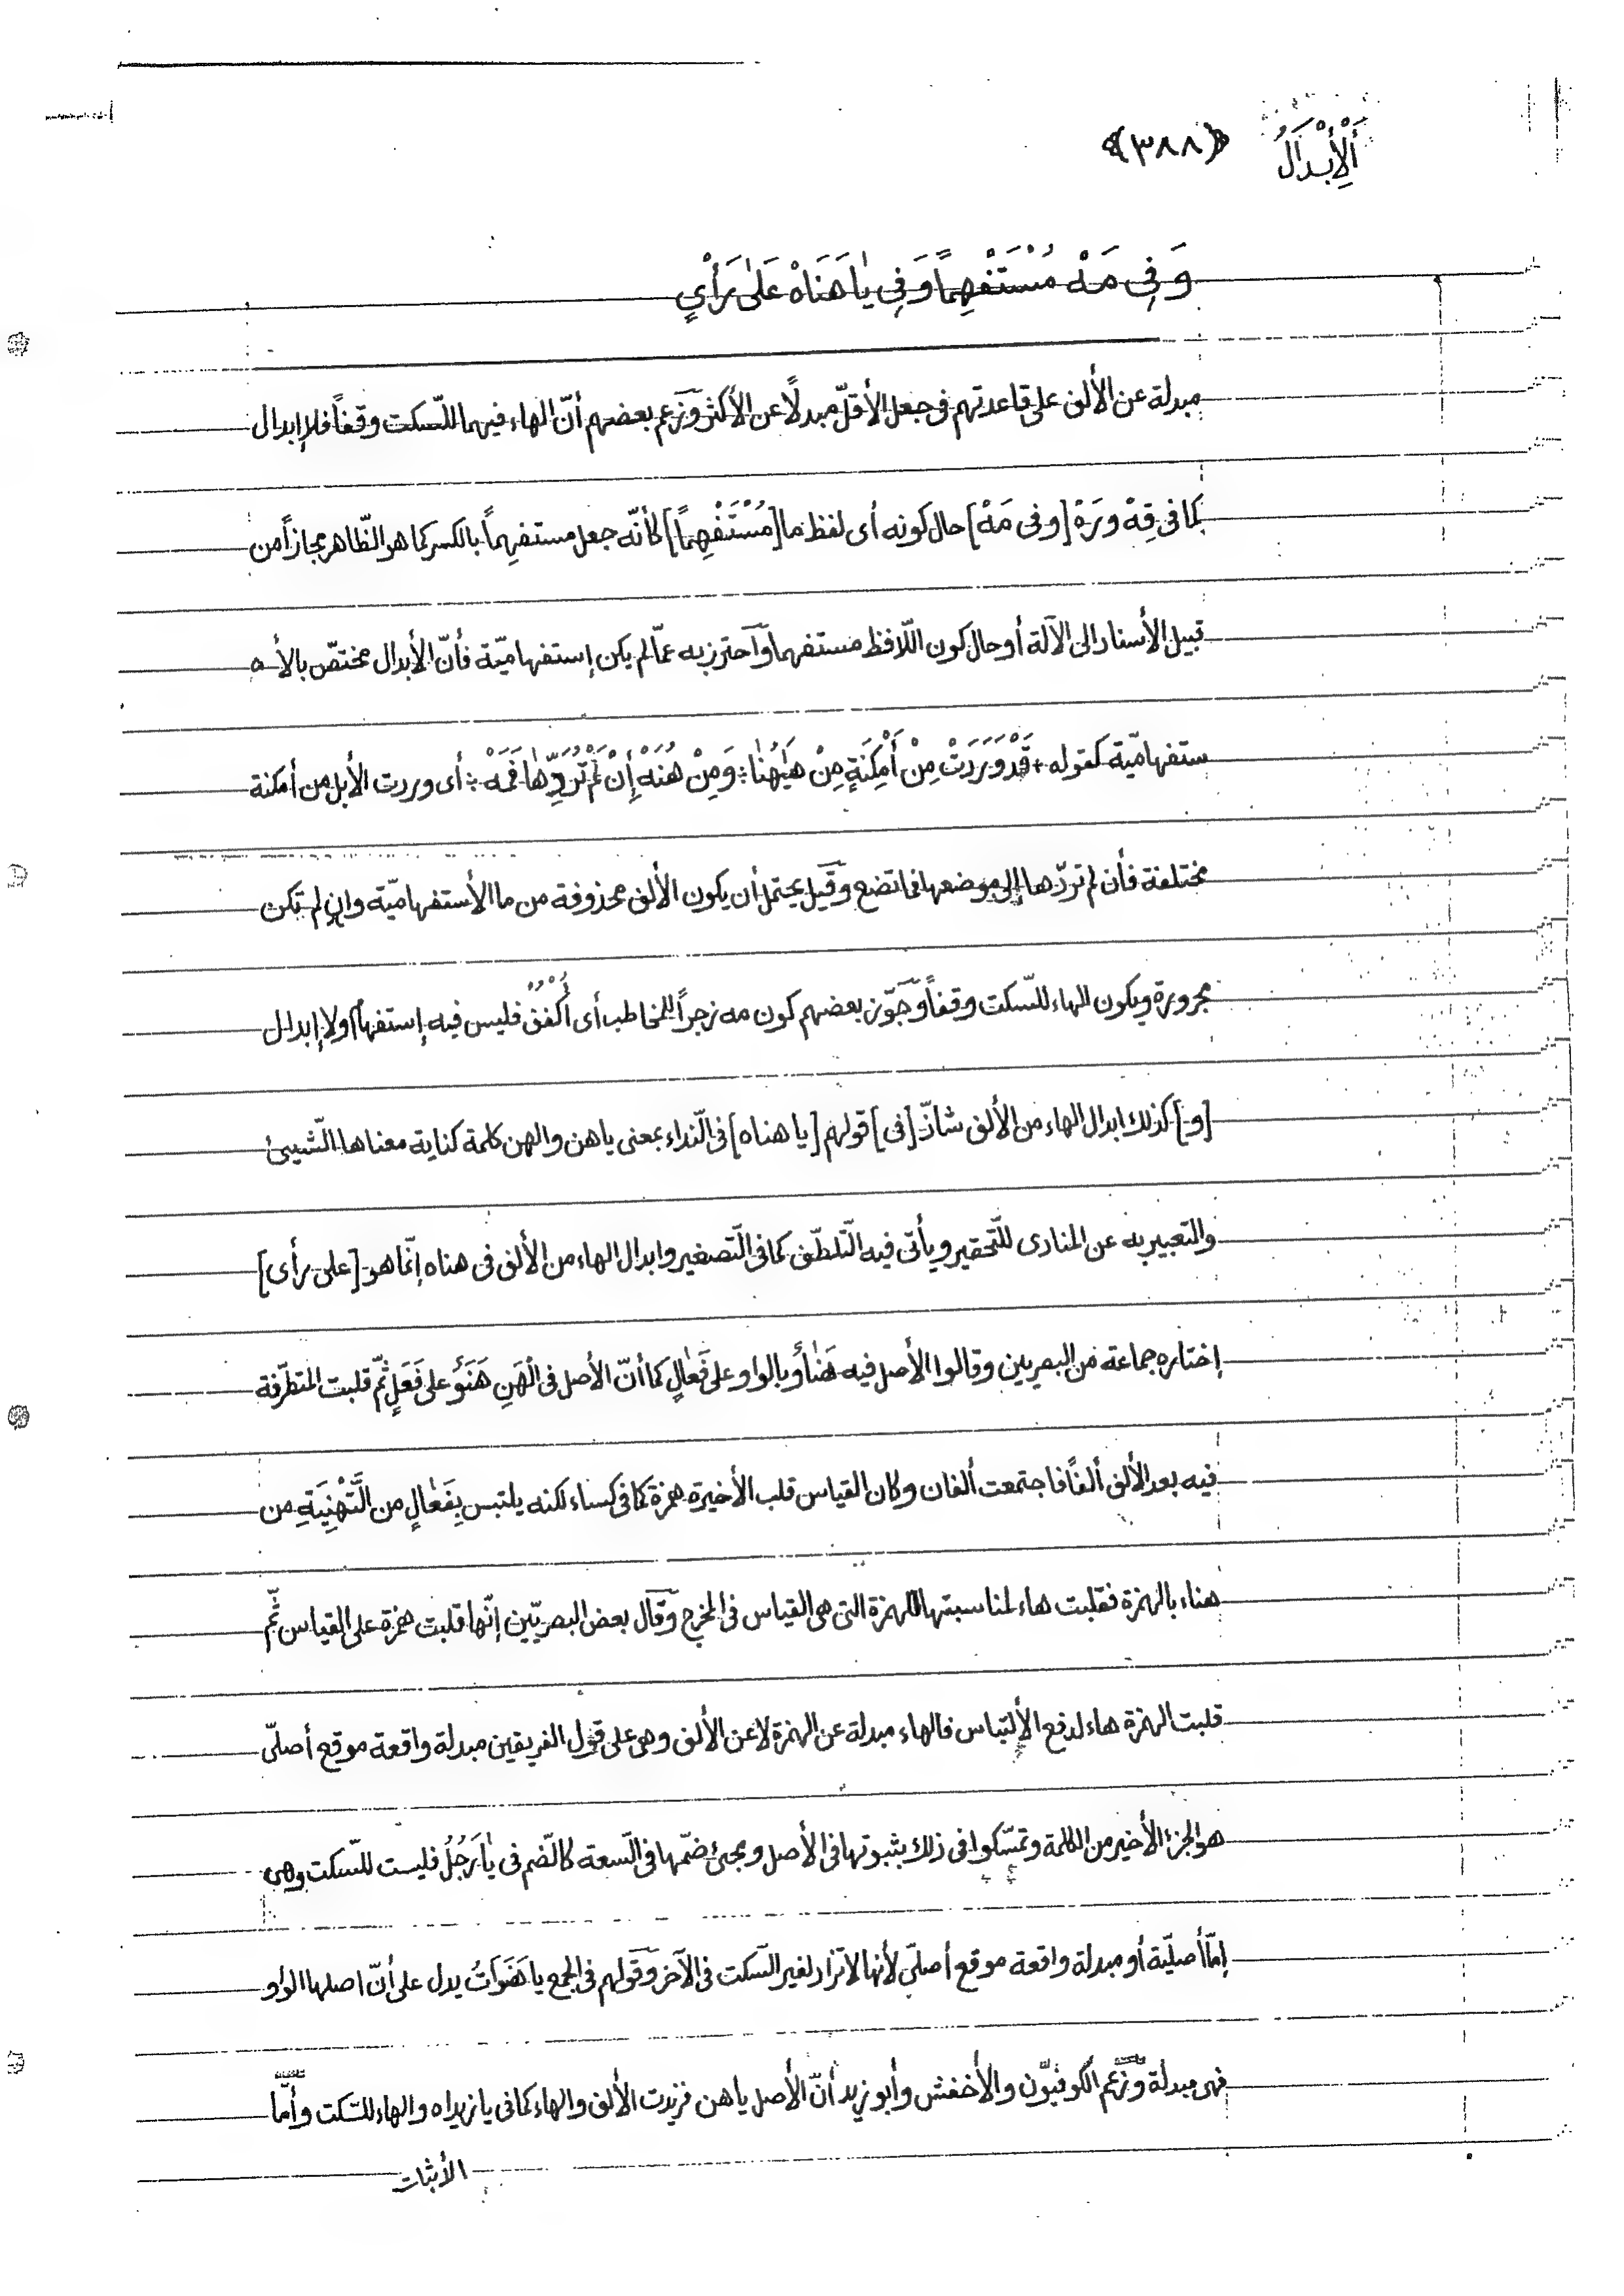 اَلْإِبْدَالُ ﴿٣٨٨﴾
وَفِى مَهْ مُسْتَفْهِمًا وَفِى يَا هَنَاهْ عَلىٰ رَأْىٍ
مبدلة عن الألف على قاعدتهم فى جعل الأقلّ مبدلًا عن الأكثر وزعم بعضهم أنّ الهاء فيهما للسّكت وقفاً فلا إبدال
كما فى قِهْ ورَهْ [وفى مَهْ] حال كونه أى لفظ ما [مُسْتَفْهِمًا] كأنّه جعل مستفهِماً بالكسر كما هو الظّاهر مجازاً من
قبيل الأسناد الى الآلة أو حال كون اللّافظ مستفهما وآحترز به عمّا لم يكن إستفهاميّة فأنّ الأبدال مختصّ بالأ
ستفهاميّة كقوله قَدْ وَرَدَتْ مِنْ أَمْكِنَةٍ مِنْ هٰيهُنَا ؛ وَمِنْ هُنَهْ إِنْ لَمْ تُرَوِّهَا فَمَهْ ؛ أى وردت الأبل من أمكنة
مختلفة فأن لم تردّها إلى موضعها فما تضع وقيل يحتمل أن يكون الألف محذوفة من ما الأستفهاميّة وان لم تكن
مجرورة ويكون الهاء للسّكت وقفاً وجوّز بعضهم كون مه زجراً للمخاطب أى أُكْفُفْ فليس فيه إستفهام ولا إبدال
[و] كذلك ابدال الهاء من الألف شاذّ [فى] قولهم [يا هناه] فى النّداء بمعنى يا هن والهن كلمة كناية معناها الشّيئ
والتّعبير به عن المنادى للتّحقير ويأتى فيه التّلطّف كما فى التّصغير وابدال الهاء من الألف فى هناه إنّما هو [على رأى]
إختاره جماعة من البصريين وقالوا الأصل فيه هَنٰاوٌ بالواو على فَعٰالٍ كما أنّ الأصل فى الْهَنِ هَنَوٌ على فَعَلٍ ثمّ قلبت المتطرّفة
فيه بعد الألف ألفاً فاجتمعت ألفان وكان القياس قلب الأخيرة همزة كما فى كساء لكنه يلتبس بِفَعٰالٍ من التَّهْنِيَةِ من
هناء بالهمزة فقلبت هاء لمناسبتها للهمزة التى هى القياس فى المخرج وقال بعض البصريّين إنّها قلبت همزة على القياس ثمّ
قلبت الهمزة هاء لدفع الألتباس فالهاء مبدلة عن الهمزة لا عن الألف وهى على قول الفريقين مبدلة واقعة موقع أصلىّ
هو الجزء الأخير من الكلمة وتمسّكوا فى ذلك بثبوتها فى الأصل ومجئ ضمّها فى السّعة كالضّم فى يٰا رَجُلُ فليست للسّكت وهى
إمّا أصليّة أو مبدلة واقعة موقع أصلىّ لأنها لا تزاد لغير السّكت فى الآخر وقولهم فى الجمع يا هَنَوَاتُ يدل على أنّ اصلها الواو
فهى مبدلة وزعم الكوفيّون والأخفش وأبو زيد أنّ الأصل يا هن فزيدت الألف والهاء كما فى يا زيداه والهاء للسّكت وأمّا
الأثبات